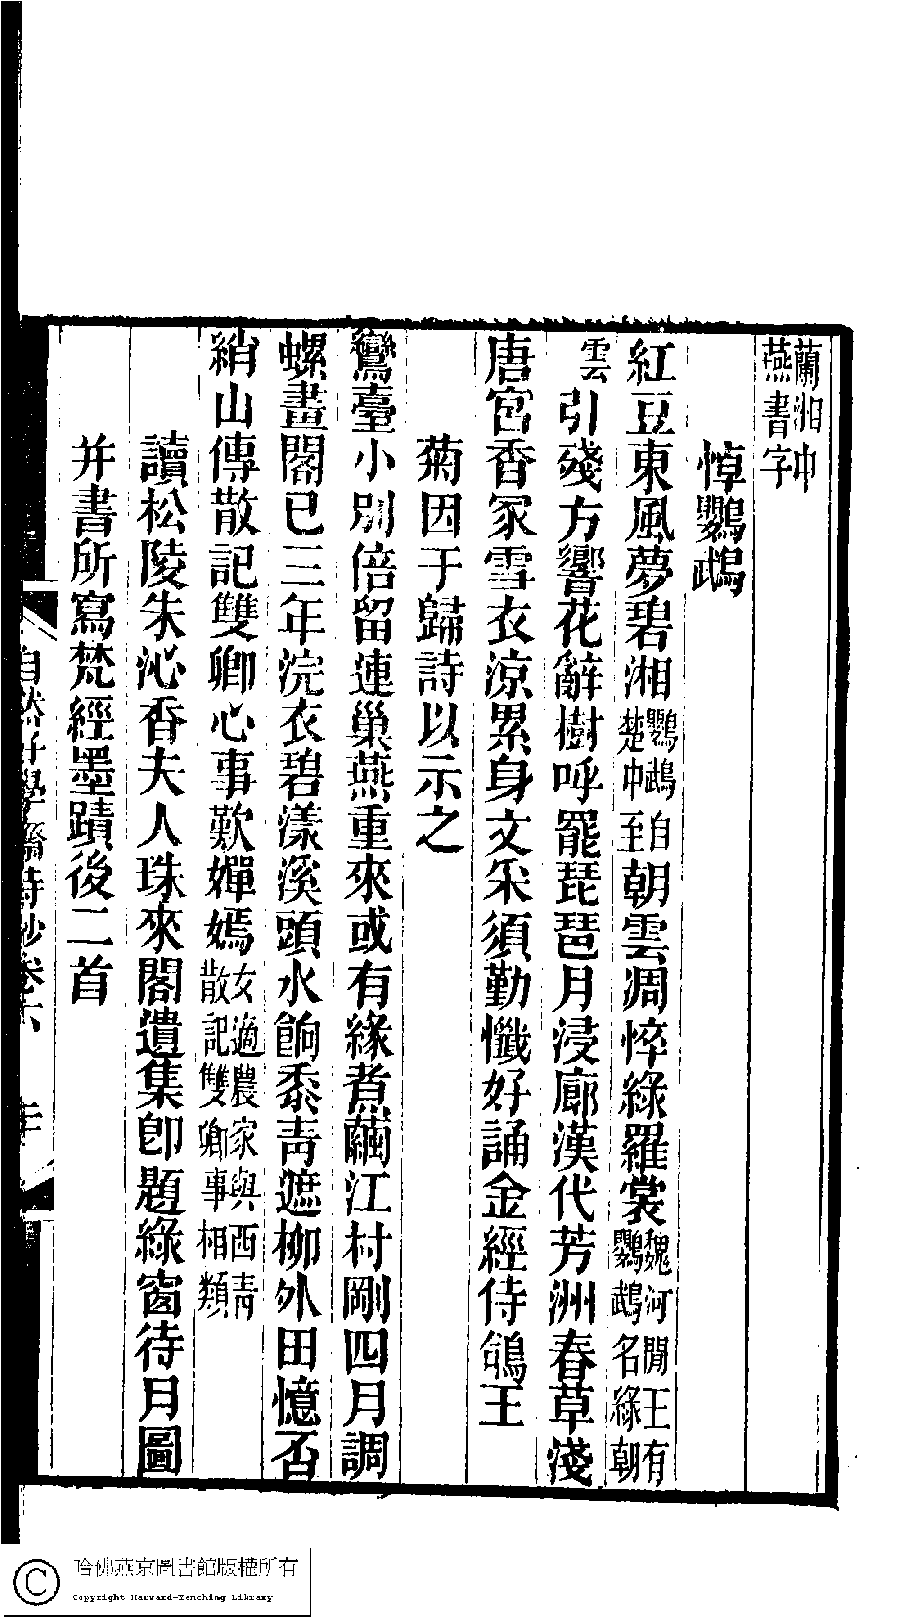 蘭湘中
燕書字
悼鸚鵡
紅豆東風夢碧湘鸚鵡自楚中至朝雲凋悴綠羅裳魏河閒王有鸚鵡名綠朝
雲引殘方響花辭樹呼罷琵琶月浸廊漢代芳洲春草淺
唐宮香冢雪衣涼累身文采須勤懺好誦金經侍鴿王
菊因于歸詩以示之
鸞臺小別倍留連巢燕重來或有緣煮繭江村剛四月調
螺畫閣已三年浣衣碧漾溪頭水餉黍靑遮柳外田憶否
綃山傳散記雙卿心事歎嬋嫣女適農家與西靑散記雙卿事相類
讀松陵朱沁香夫人珠來閣遺集卽題綠窗待月圖
并書所寫梵經墨蹟後二首
自然好學齋詩鈔卷六
哈佛燕京圖書館版權所有
Copyright Harvard-Yenching Library